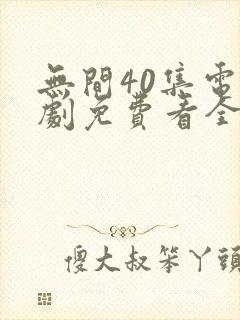 無間40集電
劇免費看全
傻大叔笨丫頭